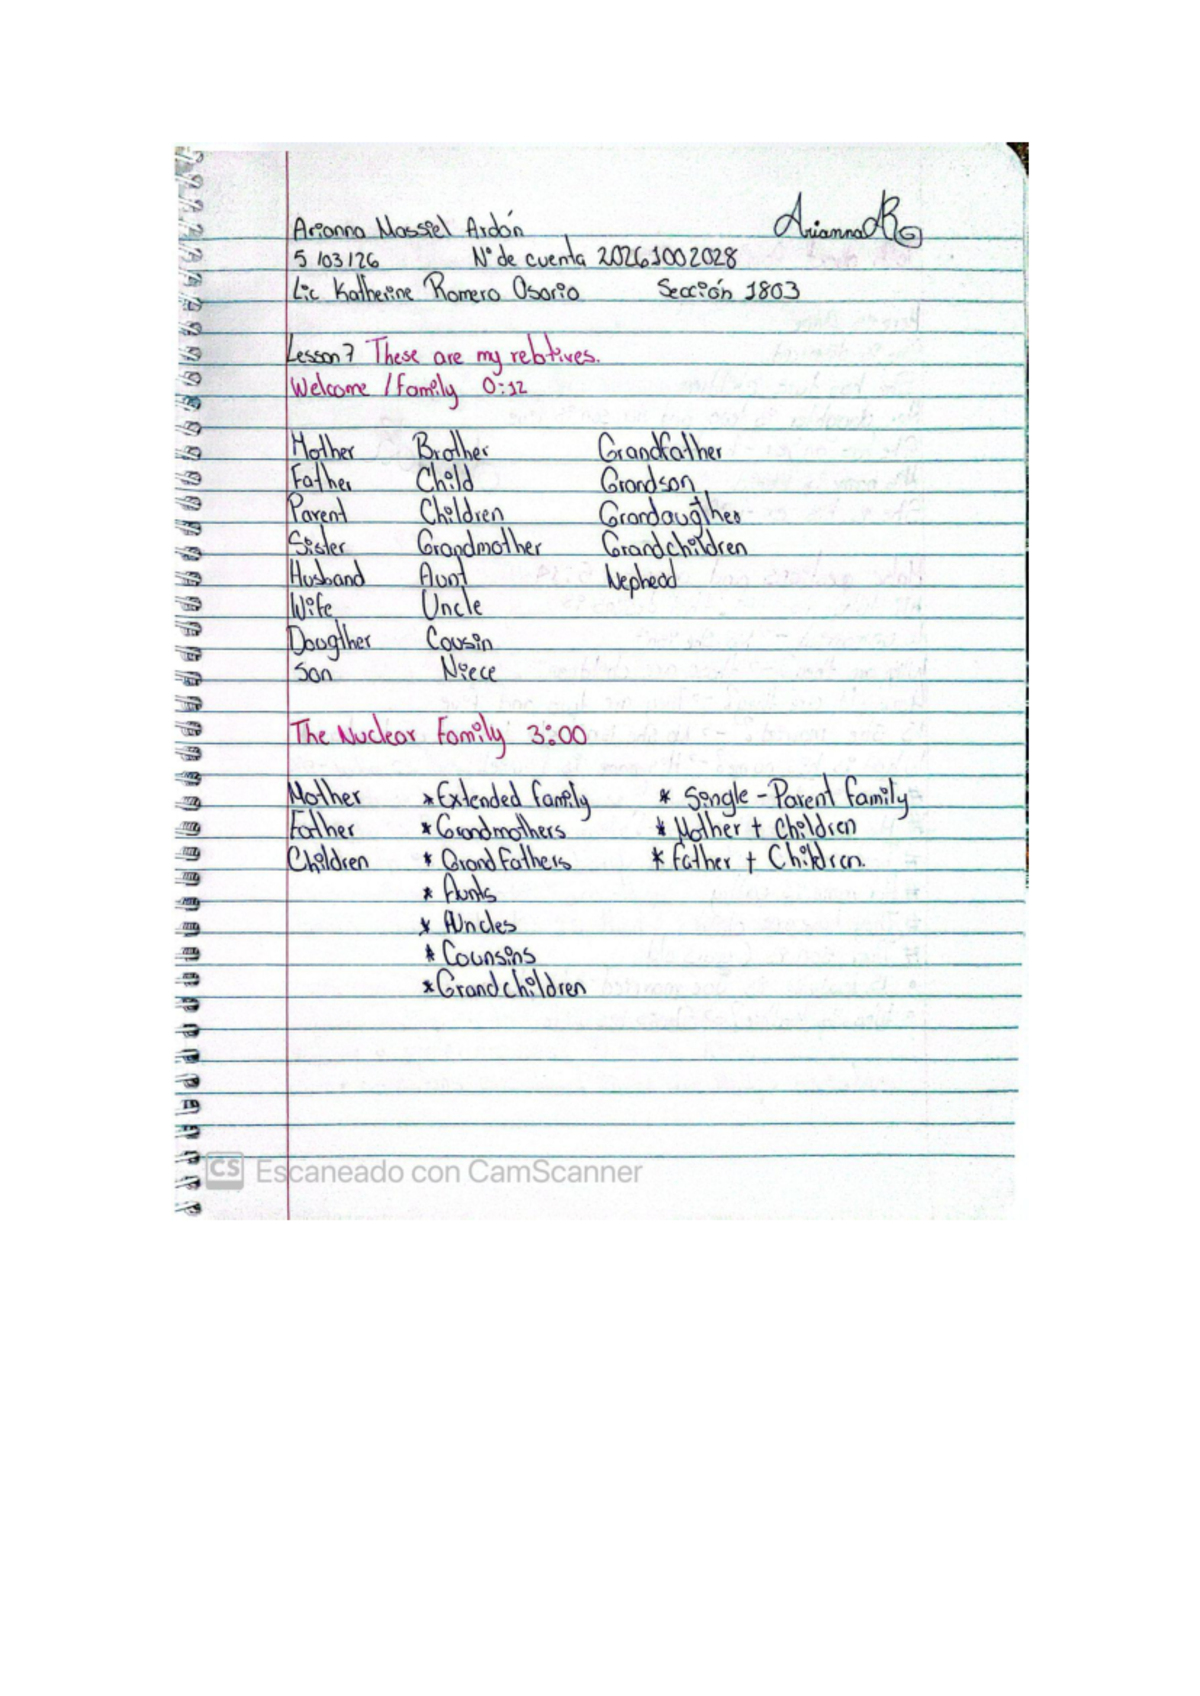 Arianna Massiel Ardón AriannaAR
5/03/26 N° de cuenta 20261002028
Lic Katherine Romero Osorio Sección 1803
Lesson 7 These are my relatives.
Welcome / family 0:12
Mother Brother Grandfather
Father Child Grandson
Parent Children Grandaugther
Sister Grandmother Grandchildren
Husband Aunt Nephedd
Wife Uncle
Dougther Cousin
Son Niece
The Nuclear Family 3:00
Mother *Extended family * Single-Parent family
Father *Grandmothers * Mother + Children
Children * GrandFathers * Father + Children.
* Aunts
* Uncles
* Counsins
*Grandchildren
CS Escaneado con CamScanner